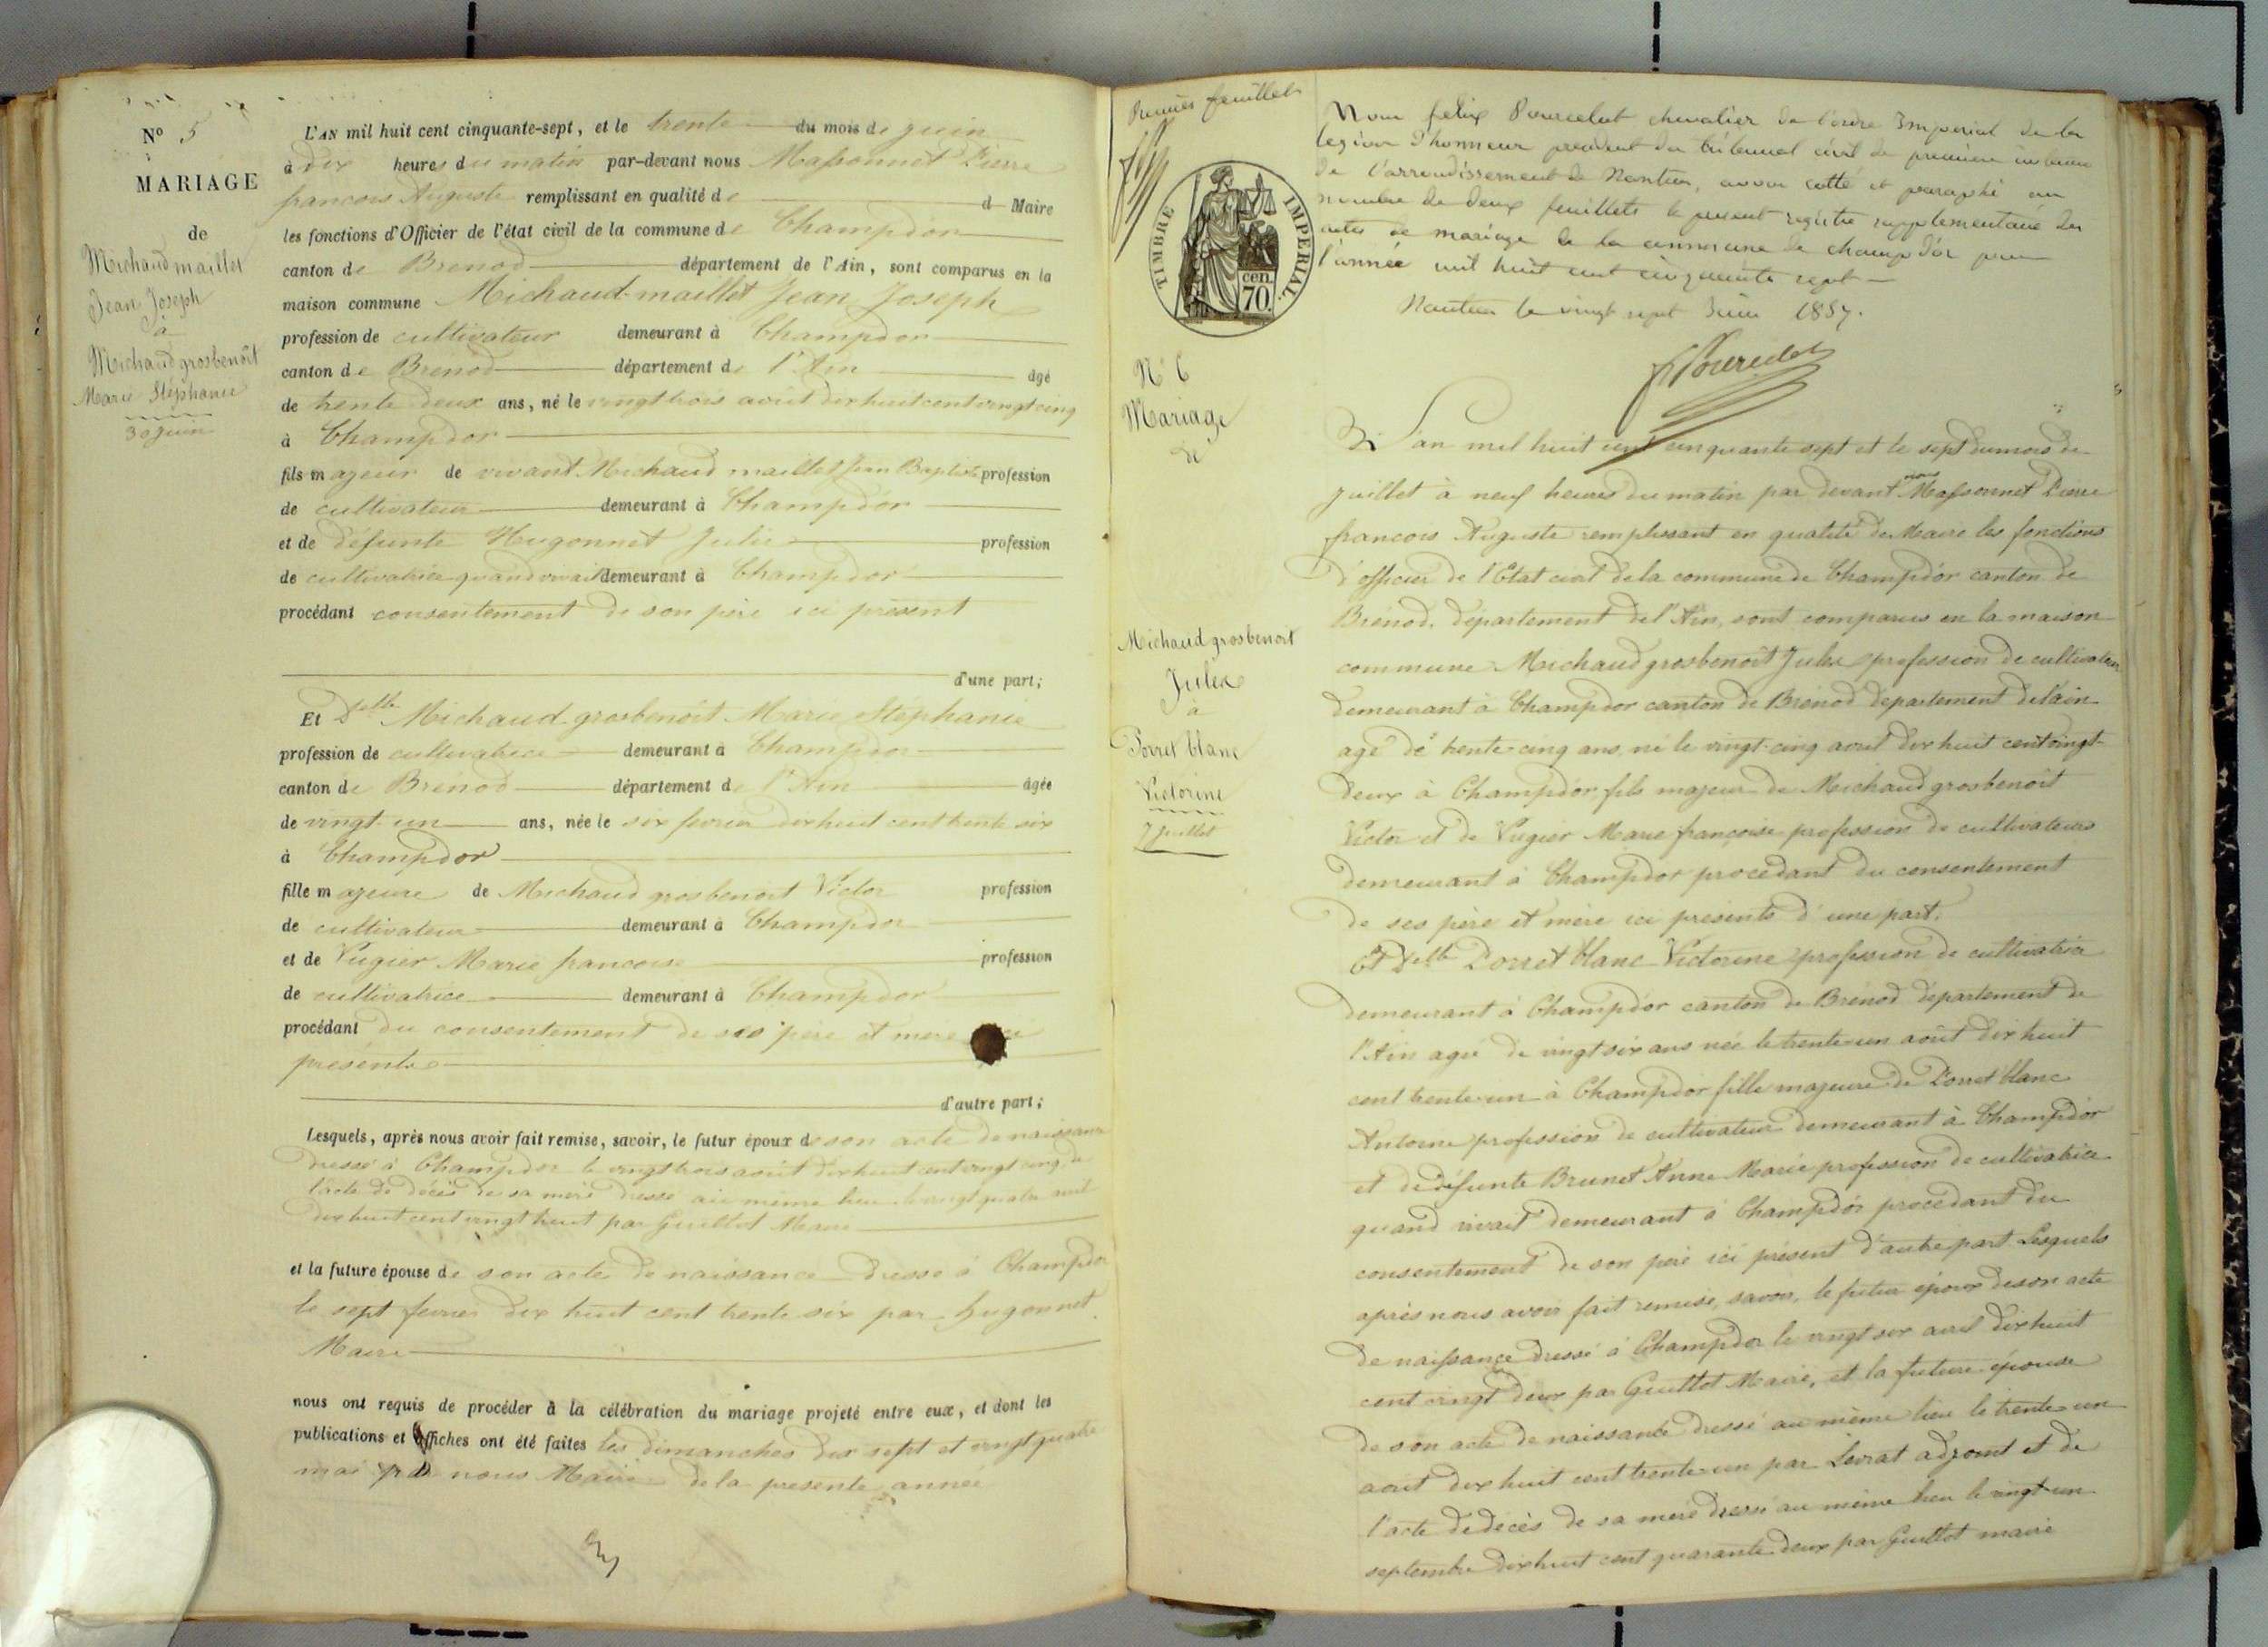 N° 5
MARIAGE
de
Michaud maillet
Jean Joseph
à
Michaud grosbenoît
Marie Stéphanie
30 juin
L'AN mil huit cent cinquante-sept, et le trente du mois de juin
à dix heures du matin par-devant nous Massonnet Pierre
francois Auguste remplissant en qualité de d Maire
les fonctions d'Officier de l'état civil de la commune de Champdor
canton de Brenod département de l'Ain, sont comparus en la
maison commune Michaud-maillet Jean Joseph
profession de cultivateur demeurant à Champdor
canton de Brenod département de l'Ain âgé
de trente deux ans, né le vingt trois août dix huit cent vingt cinq
à Champdor
fils majeur de vivant Michaud maillet Jean Baptiste profession
de cultivateur demeurant à Champdor
et de défunte Hugonnet Julie profession
de cultivatrice quand vivait demeurant à Champdor
procédant consentement de son père ici présent
d'une part;
Et Delle Michaud grosbenoît Marie Stéphanie
profession de cultivatrice demeurant à Champdor
canton de Brénod département de l'Ain âgée
de vingt-un ans, née le six fevrier dix huit cent trente six
à Champdor
fille majeure de Michaud grosbenoit Victor profession
de cultivateur demeurant à Champdor
et de Pugier Marie francoise profession
de cultivatrice demeurant à Champdor
procédant du consentement de ses père et mere
présents
d'autre part;
Lesquels, après nous avoir fait remise, savoir, le futur époux de son acte de naissance
dressé à Champdor le vingt trois août dix huit cent vingt cinq, de
l'acte de décès de sa mère dressé au même lieu le vingt quatre avril
dix huit cent vingt huit par Guillot Maire
et la future épouse de son acte de naissance dressé à Champdor
le sept fevrier dix huit cent trente six par hugonnet
Maire
nous ont requis de procéder à la célébration du mariage projeté entre eux, et dont les
publications et affiches ont été faites les dimanches dix sept et vingt quatre
mai par nous Maire de la presente année
Premier feuillet
TIMBRE IMPERIAL.
cen.
70.
Nous félix Pourcelot chevalier de l'ordre Impérial de la
légion d'honneur président du tribunal civil de première instance
de l'arrondissement de Nantua, avons cotté et paraphé au
nombre de deux feuillets le présent registre supplementaire des
actes de mariage de la commune de champdor pour
l'année mil huit cent cinquante sept
Nantua le vingt sept Juin 1857.
F Pourcelot
N° 6
Mariage
de
Michaud grosbenoît
Jules
à
Porret blanc
Victorine
7 Juillet
L'an mil huit cent cinquante sept et le sept du mois de
Juillet à neuf heures du matin par devant nous Massonnet Pierre
francois Auguste remplissant en qualité de Maire les fonctions
d'officier de l'Etat civil de la commune de Champdor canton de
Brénod, département de l'Ain, sont comparus en la maison
commune Michaud grosbenoît Jules profession de cultivateur
demeurant à Champdor canton de Brénod département de l'ain
agé de trente-cinq ans, né le vingt-cinq avril dix huit cent vingt
deux à Champdor, fils majeur de Michaud grosbenoît
Victor et de Pugier Marie françoise profession de cultivateurs
demeurant à Champdor procédant du consentement
de ses père et mère ici présents d'une part.
Et Delle Porret blanc Victorine profession de cultivatrice
demeurant à Champdor canton de Brénod département de
l'Ain agée de vingt six ans née le trente-un août dix huit
cent trente-un à Champdor fille majeure de Porret blanc
Antoine profession de cultivateur demeurant à Champdor
et de défunte Brunet Anne Marie profession de cultivatrice
quand vivait demeurant à Champdor procédant du
consentement de son père ici présent d'autre part Lesquels
après nous avoir fait remise, savoir, le futur époux de son acte
de naissance dressé à Champdor le vingt six avril dix huit
cent vingt deux par Guillot Maire, et la future épouse
de son acte de naissance dressé au même lieu le trente-un
août dix huit cent trente-un par Levrat adjoint et de
l'acte de décès de sa mère dressé au même lieu le vingt-un
septembre dix huit cent quarante deux par Guillot maire